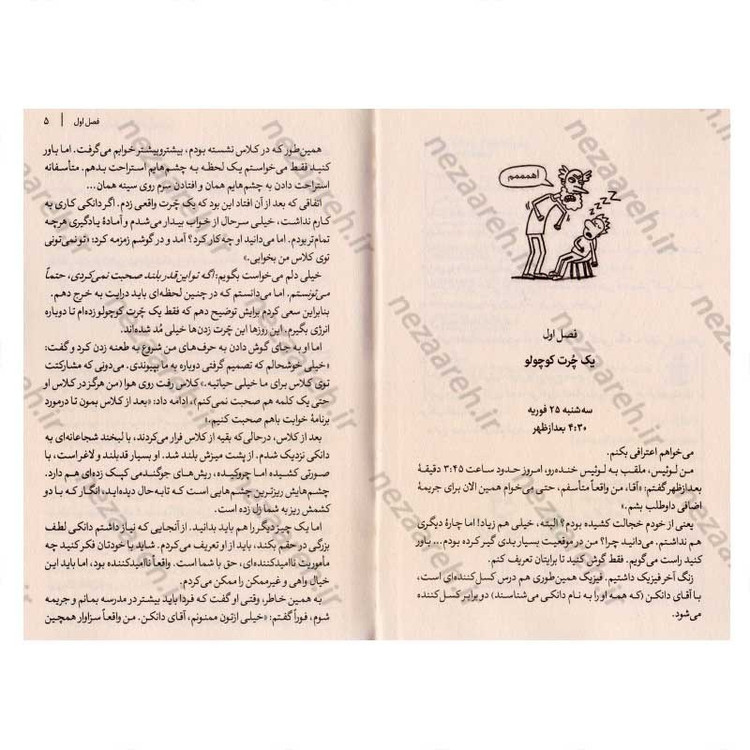 اهمممم
zzzz
فصل اول
یک چُرت کوچولو
سه‌شنبه ۲۵ فوریه
۴:۳۰ بعدازظهر
می‌خواهم اعترافی بکنم.
من لوئیس، ملقب به لوئیس خنده‌رو، امروز حدود ساعت ۳:۴۵ دقیقهٔ
بعدازظهر گفتم: «آقا، من واقعاً متأسفم، حتی می‌خوام همین الان برای جریمهٔ
اضافی داوطلب بشم.»
یعنی از خودم خجالت کشیده بودم؟ البته، خیلی هم زیاد! اما چارهٔ دیگری
هم نداشتم. می‌دانید چرا؟ من در موقعیت بسیار بدی گیر کرده بودم... باور
کنید راست می‌گویم. فقط گوش کنید تا برایتان تعریف کنم.
زنگ آخر فیزیک داشتیم. فیزیک همین‌طوری هم درس کسل‌کننده‌ای است،
با آقای دانکن (که همه او را به نام دانکی می‌شناسند) دو برابر کسل‌کننده
می‌شود.
فصل اول | ۵
همین‌طور که در کلاس نشسته بودم، بیشتروبیشتر خوابم می‌گرفت. اما باور
کنید فقط می‌خواستم یک لحظه به چشم‌هایم استراحت بدهم. متأسفانه
استراحت دادن به چشم‌هایم همان و افتادن سرم روی سینه همان...
اتفاقی که بعد از آن افتاد این بود که یک چرت واقعی زدم. اگر دانکی کاری به
کارم نداشت، خیلی سرحال از خواب بیدار می‌شدم و آمادهٔ یادگیری هرچه
تمام‌تر بودم. اما می‌دانید او چه‌کار کرد؟ آمد و در گوشم زمزمه کرد: «تو نمی‌تونی
توی کلاس من بخوابی.»
خیلی دلم می‌خواست بگویم: اگه تو این‌قدر بلند صحبت نمی‌کردی، حتماً
می‌تونستم. اما می‌دانستم که در چنین لحظه‌ای باید درایت به خرج دهم.
بنابراین سعی کردم برایش توضیح دهم که فقط یک چُرت کوچولو زده‌ام تا دوباره
انرژی بگیرم. این روزها این چُرت زدن‌ها خیلی مُد شده‌اند.
اما او به جای گوش دادن به حرف‌های من شروع به طعنه زدن کرد و گفت:
«خیلی خوشحالم که تصمیم گرفتی دوباره به ما بپیوندی. می‌دونی که مشارکتت
توی کلاس برای ما خیلی حیاتیه.» کلاس رفت روی هوا (من هرگز در کلاس او
حتی یک کلمه هم صحبت نمی‌کنم)، ادامه داد: «بعد از کلاس بمون تا درمورد
برنامهٔ خوابت باهم صحبت کنیم.»
بعد از کلاس، درحالی‌که بقیه از کلاس فرار می‌کردند، با لبخند شجاعانه‌ای به
دانکی نزدیک شدم. از پشت میزش بلند شد. او بسیار قدبلند و لاغر است، با
صورتی کشیده اما چروکیده، ریش‌های جوگندمی کپک زده‌ای هم دارد.
چشم‌هایش ریزترین چشم‌هایی است که تا به حال دیده‌اید، انگار که با دو
کشمش ریز به شما زل زده است.
اما یک چیز دیگر را هم باید بدانید. از آنجایی که نیاز داشتم دانکی لطف
بزرگی در حقم بکند، باید از او تعریف می‌کردم. شاید با خودتان فکر کنید چه
مأموریت ناامیدکننده‌ای، حق با شما است. واقعاً ناامیدکننده بود، اما باید این
خیال واهی و غیرممکن را ممکن می‌کردم.
به همین خاطر، وقتی او گفت که فردا باید بیشتر در مدرسه بمانم و جریمه
شوم، فوراً گفتم: «خیلی ازتون ممنونم، آقای دانکن. من واقعاً سزاوار همچین
nezaareh.ir
nezaareh.ir
nezaareh.ir
nezaareh.ir
nezaareh.ir
nezaareh.ir